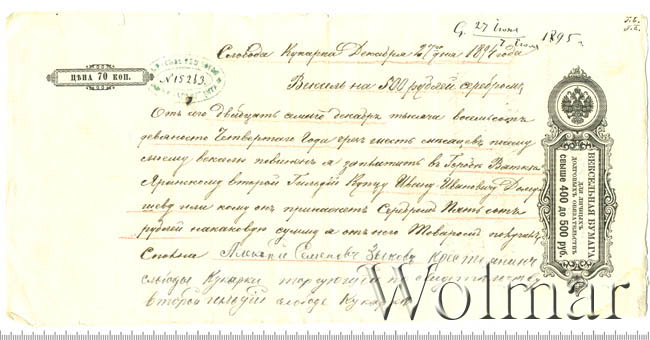 С. 27 Июня 1895.
7 Июля
Слобода Кукарка Декабря 27го дня 1894 года
ЦѢНА 70 КОП.
№15213
Вексиль на 500 рублей серебромъ
Отъ сего двадцать седьмаго декабря тысяча восемьсотъ
девяносто Четвертаго Года чрезъ шесть месяцевъ по сему
моему векселю повиненъ я заплатить въ Городе Вятке
Яранскому второй Гильдіи Купцу Ивану Ивановичу
или кому онъ прикажетъ Серебромъ Пять сотъ
рублей накаковую сумму я отъ него Товаромъ получилъ
Слободы Кукарки торгующій по свидетельству
второй гильдіи слободе Кукарке
ВЕКСЕЛЬНАЯ БУМАГА
ДЛЯ ЛИЧНЫХЪ
ДОЛГОВЫХЪ ОБЯЗАТЕЛЬСТВЪ
СВЫШЕ 400 ДО 500 РУБ.
Wolmar